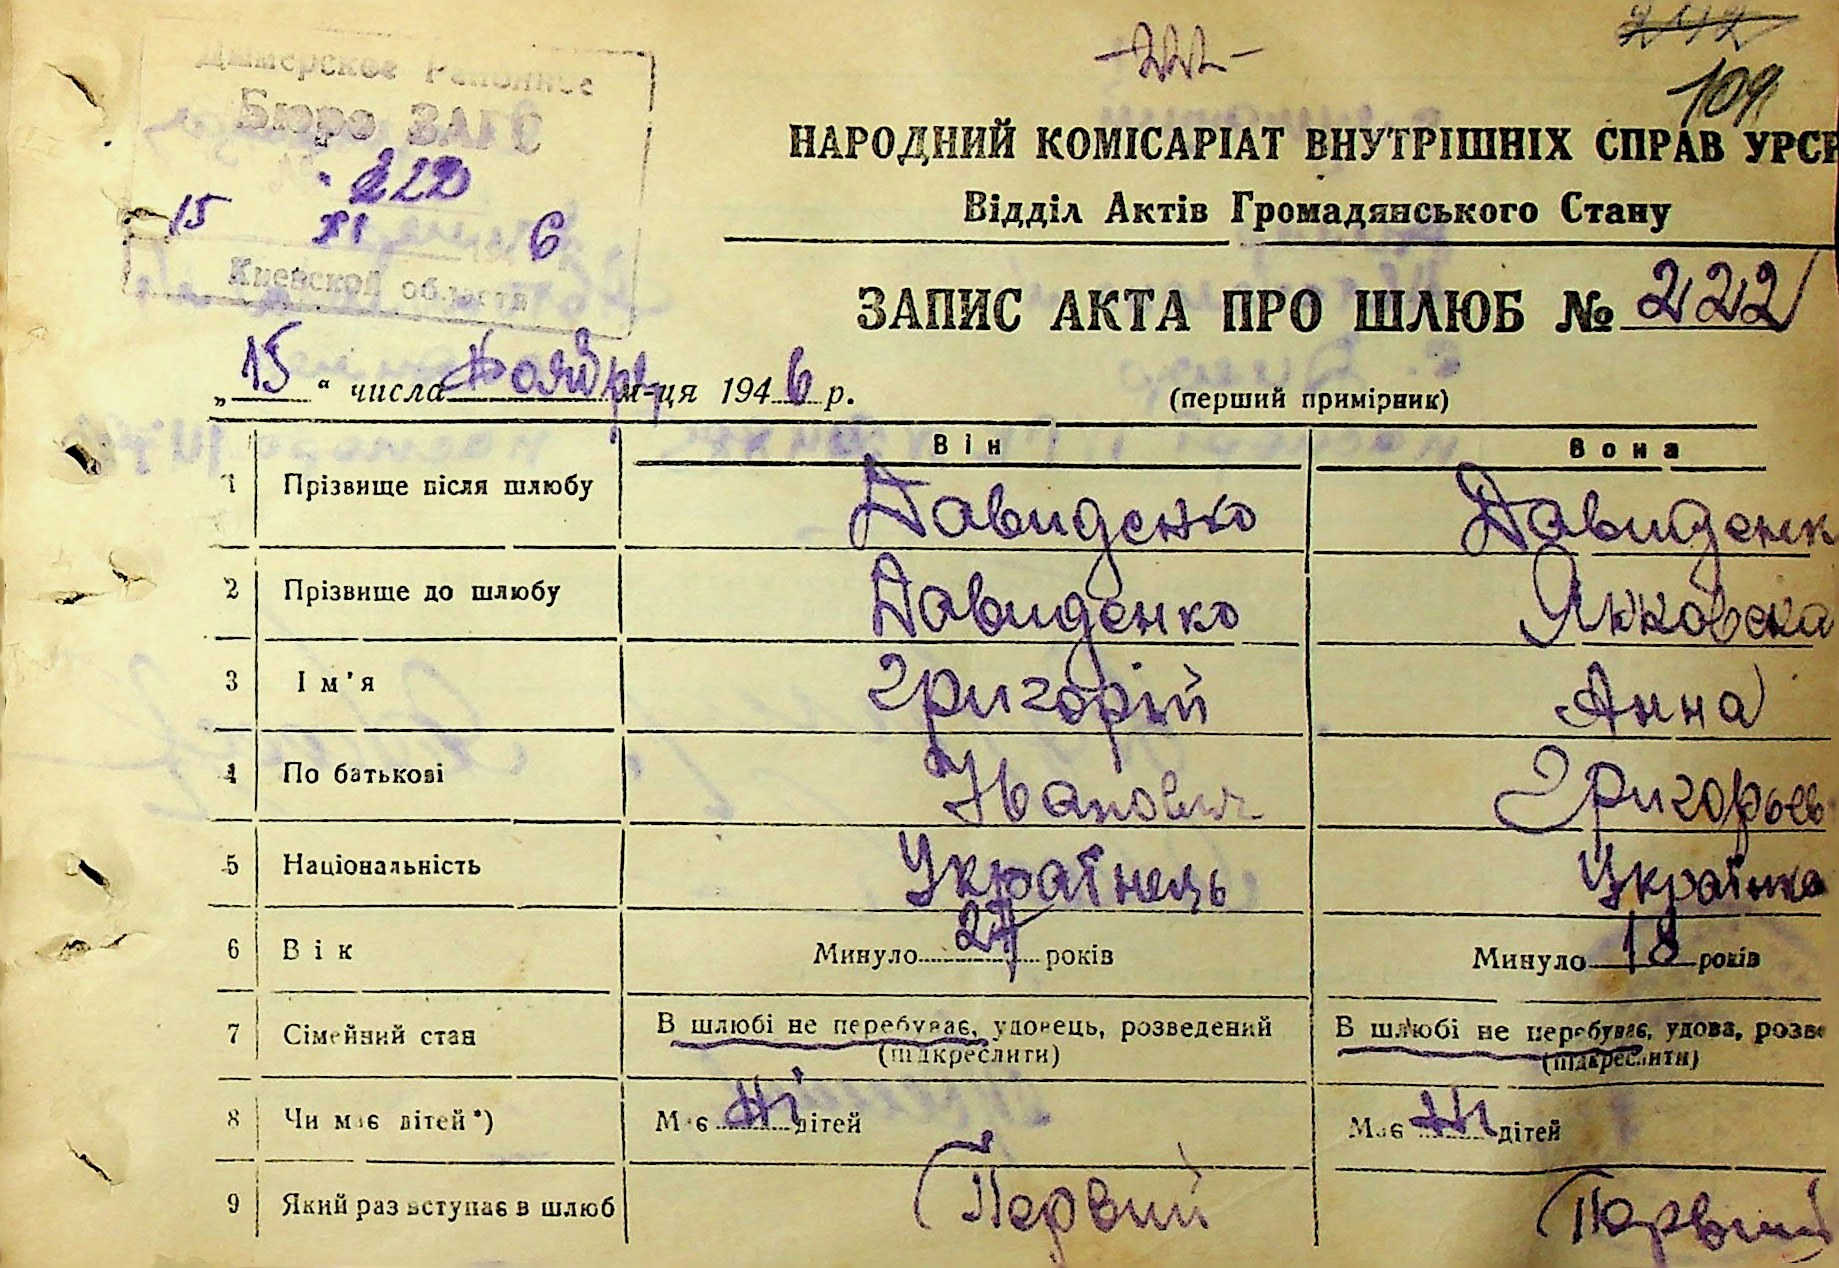 -222-
212
109
Дымерское Районное
Бюро ЗАГС
222
15 XI 6
Киевской области
НАРОДНИЙ КОМІСАРІАТ ВНУТРІШНІХ СПРАВ УРСР
Відділ Актів Громадянського Стану
ЗАПИС АКТА ПРО ШЛЮБ № 222
„15“ числа Ноября м-ця 1946 р. (перший примірник)
Він Вона
1 Прізвище після шлюбу Давиденко Давиденк
2 Прізвище до шлюбу Давиденко
3 Ім'я Григорій Анна
4 По батькові Іванович Григорьев
5 Національність Українець Українка
6 Вік Минуло 27 років Минуло 18 років
7 Сімейний стан В шлюбі не перебуває, удовець, розведений В шлюбі не перебуває, удова, розве
(підкреслити) (підкреслити)
8 Чи має дітей*) Має ні дітей Має ні дітей
9 Який раз вступає в шлюб Первий Первий